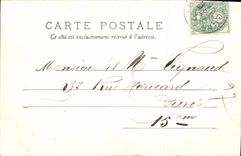 CARTE POSTALE
Ce côté est exclusivement réservé à l'adresse.
Monsieur et Mme Vignaud
37 Rue Mericard
Paris
15 eme